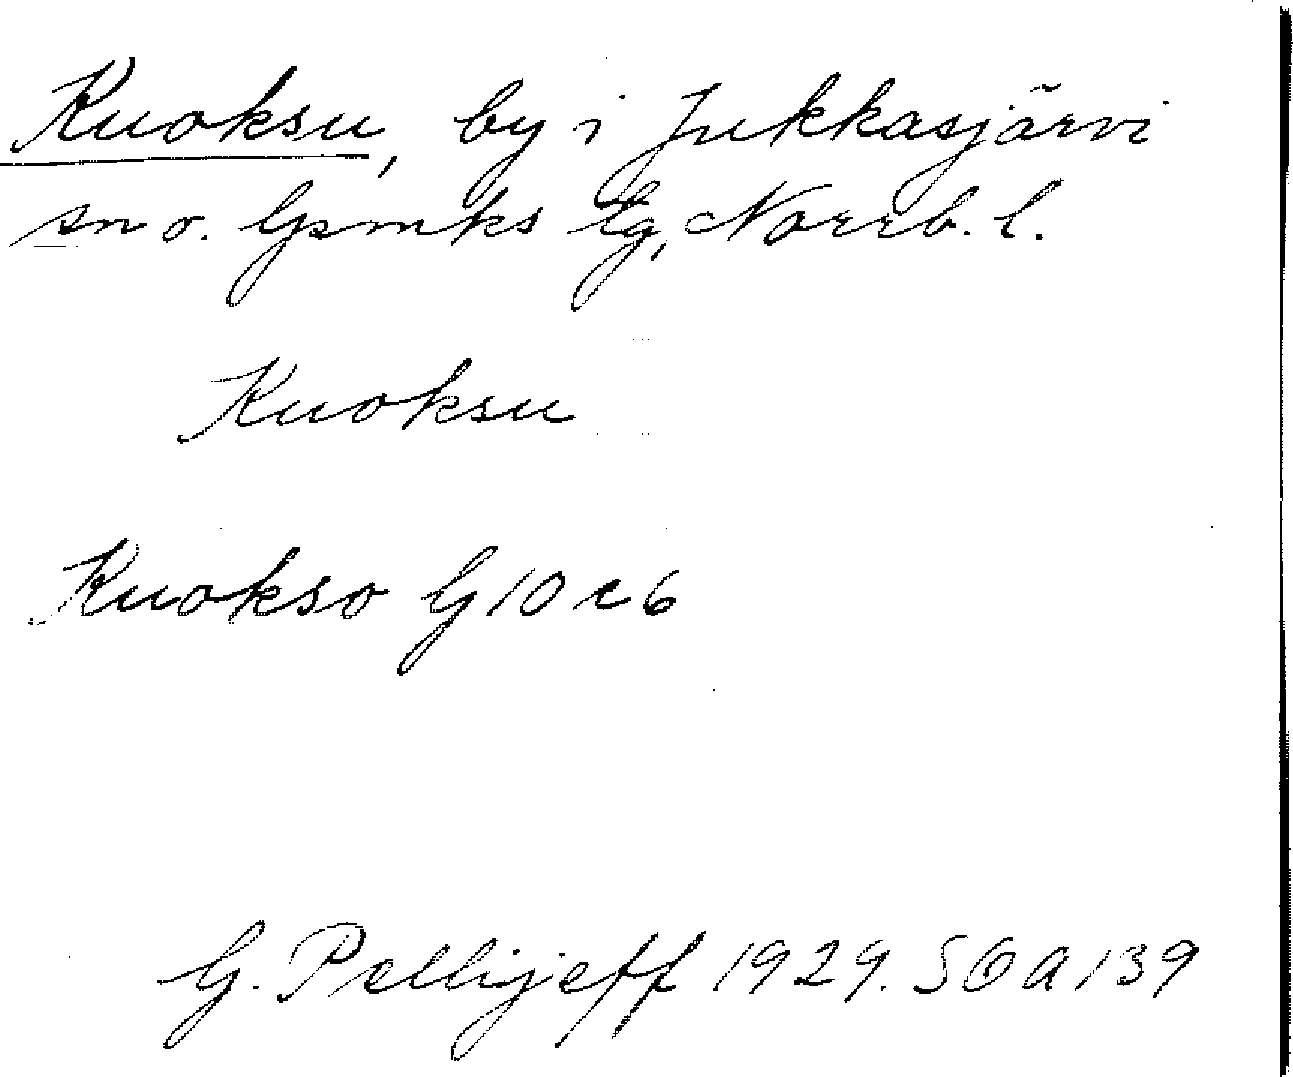 Kuoksu, by i Jukkasjärvi
sn o. Gsmks tg, Norrb. l.
Kuoksu
Kuokso G 10 c 6
G. Pellijeff 1929. SOA 139